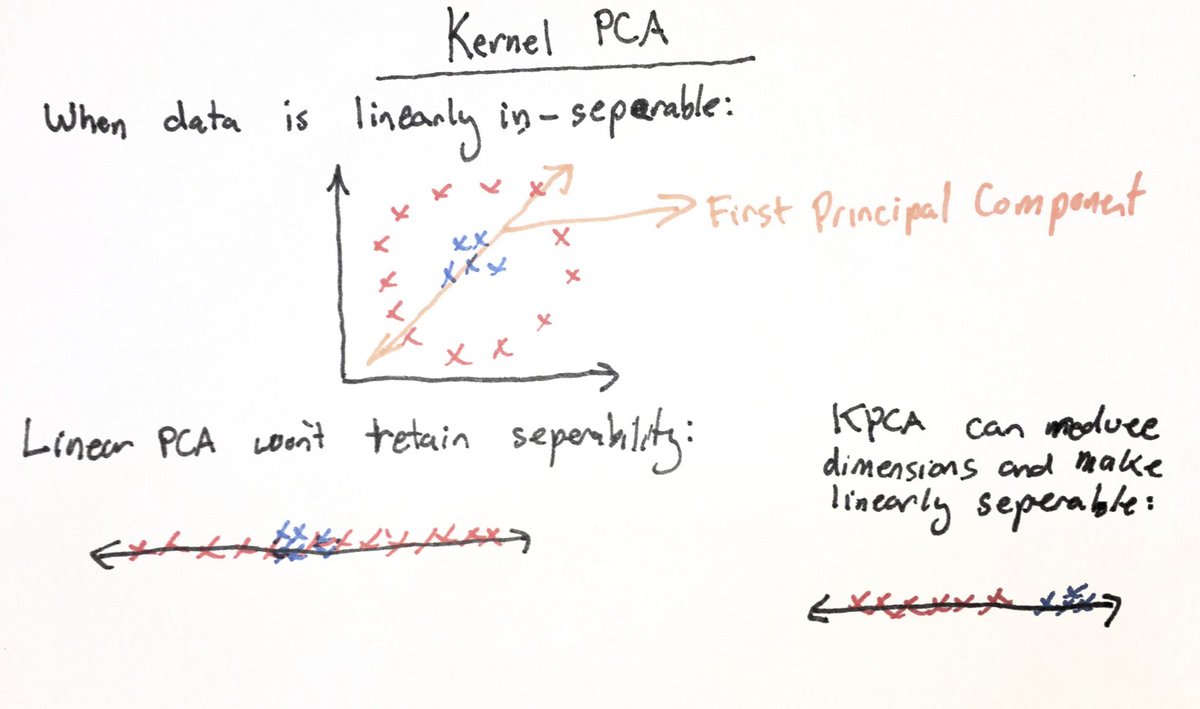 Kernel PCA
When data is linearly in-seperable:
First Principal Component
Linear PCA won't retain seperability:
KPCA can reduce
dimensions and make
linearly seperable: